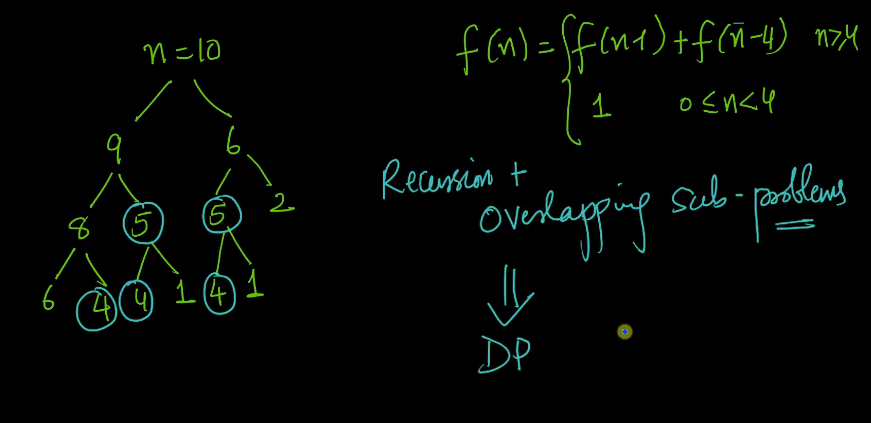 n = 10
9 6
8 5 5 2
6 4 4 1 4 1
f(n) = { f(n-1) + f(n-4) n≥4
1 0 ≤ n < 4
Recursion +
Overlapping sub-problems
⇓
DP